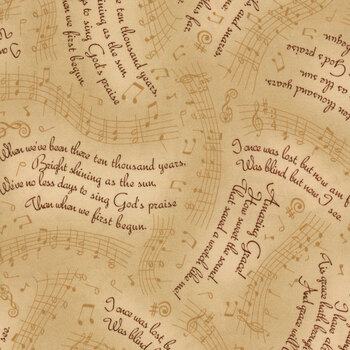 ten thousand years,
shining as the sun,
less days to sing God's praise
when we first begun.
snares,
far
God's praise
as the sun,
ten thousand years,
When we've been there ten thousand years,
Bright shining as the sun,
We've no less days to sing God's praise
Than when we first begun.
I once was lost but now am
Was blind but now I see.
Amazing Grace!
How sweet the sound
That saved a wretch like me!
I once was lost
Was blind
see.
'Tis grace
And grace